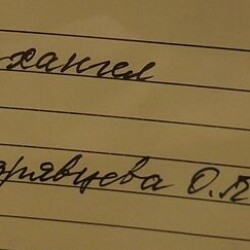 хангел
дрявцева О.В